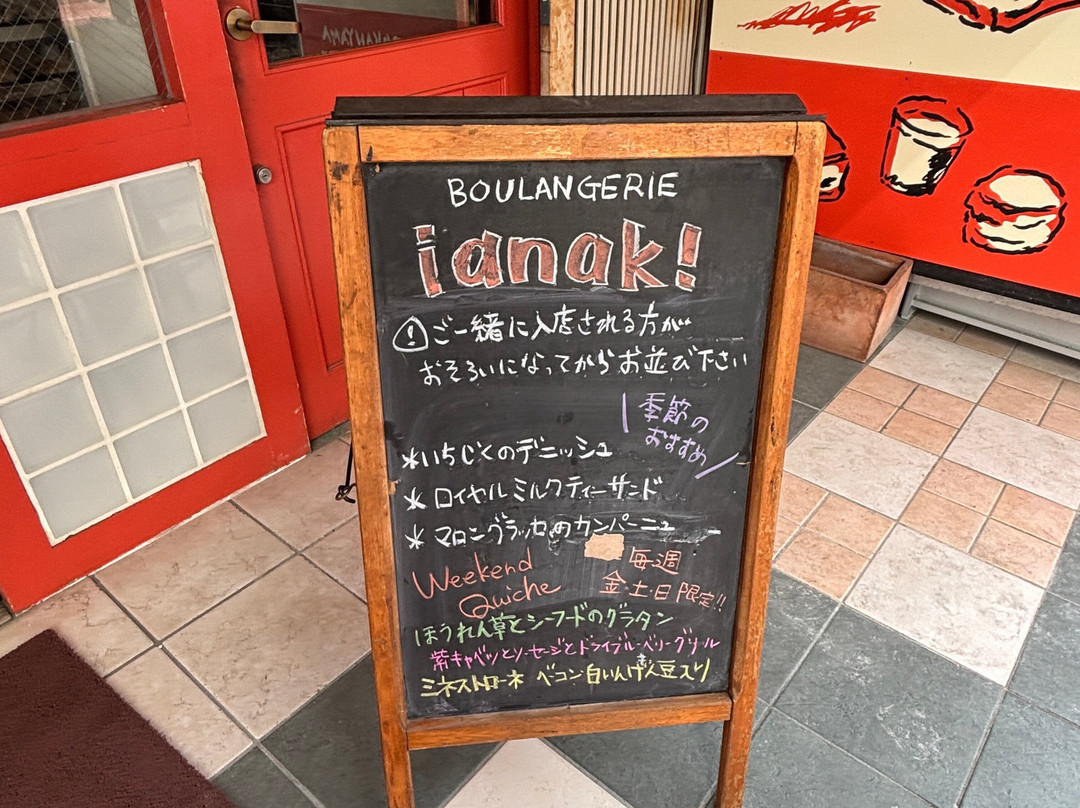 BOULANGERIE
ianak!
! ご一緒に入店される方が
おそろいになってからお並び下さい
季節の
おすすめ
*いちじくのデニッシュ
*ロイヤルミルクティーサンド
*マロングラッセのカンパーニュ
Weekend
Quiche
毎週
金・土・日限定!!
ほうれん草とシーフードのグラタン
紫キャベツとソーセージとドライブルーベリーグリル
ミネストローネ ベーコン白いんげん豆入り